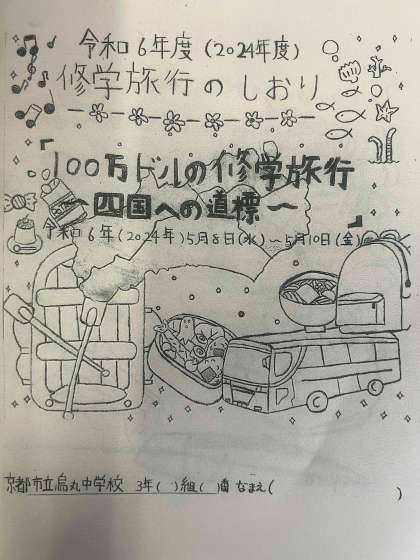 令和6年度(2024年度)
修学旅行のしおり
100万ドルの修学旅行
〜四国への道標〜
令和6年(2024年)5月8日(水)〜5月10日(金)
京都市立烏丸中学校 3年( )組( )番 なまえ( )